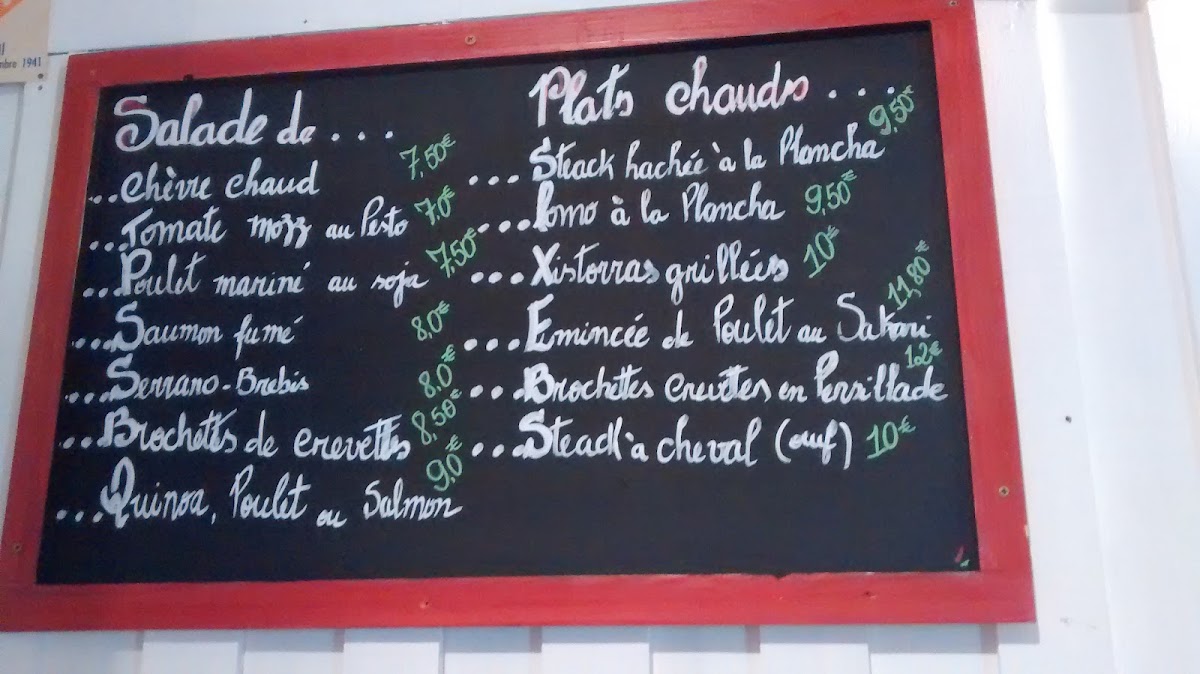 mbre 1941
Salade de...
...Chèvre chaud 7,50€
...Tomate mozz au Pesto 7,0€
...Poulet mariné au soja 7,50€
...Saumon fumé 8,0€
...Serrano-Brebis 8,0€
...Brochettes de crevettes 8,50€
...Quinoa, Poulet ou Salmon 9,0€
Plats chauds...
...Steack hachée à la Plancha 9,50€
...Lomo à la Plancha 9,50€
...Xistorras grillées 10€
...Emincée de Poulet au Sakari 11,80€
...Brochettes crevettes en Persillade 12€
...Steack à cheval (œuf) 10€